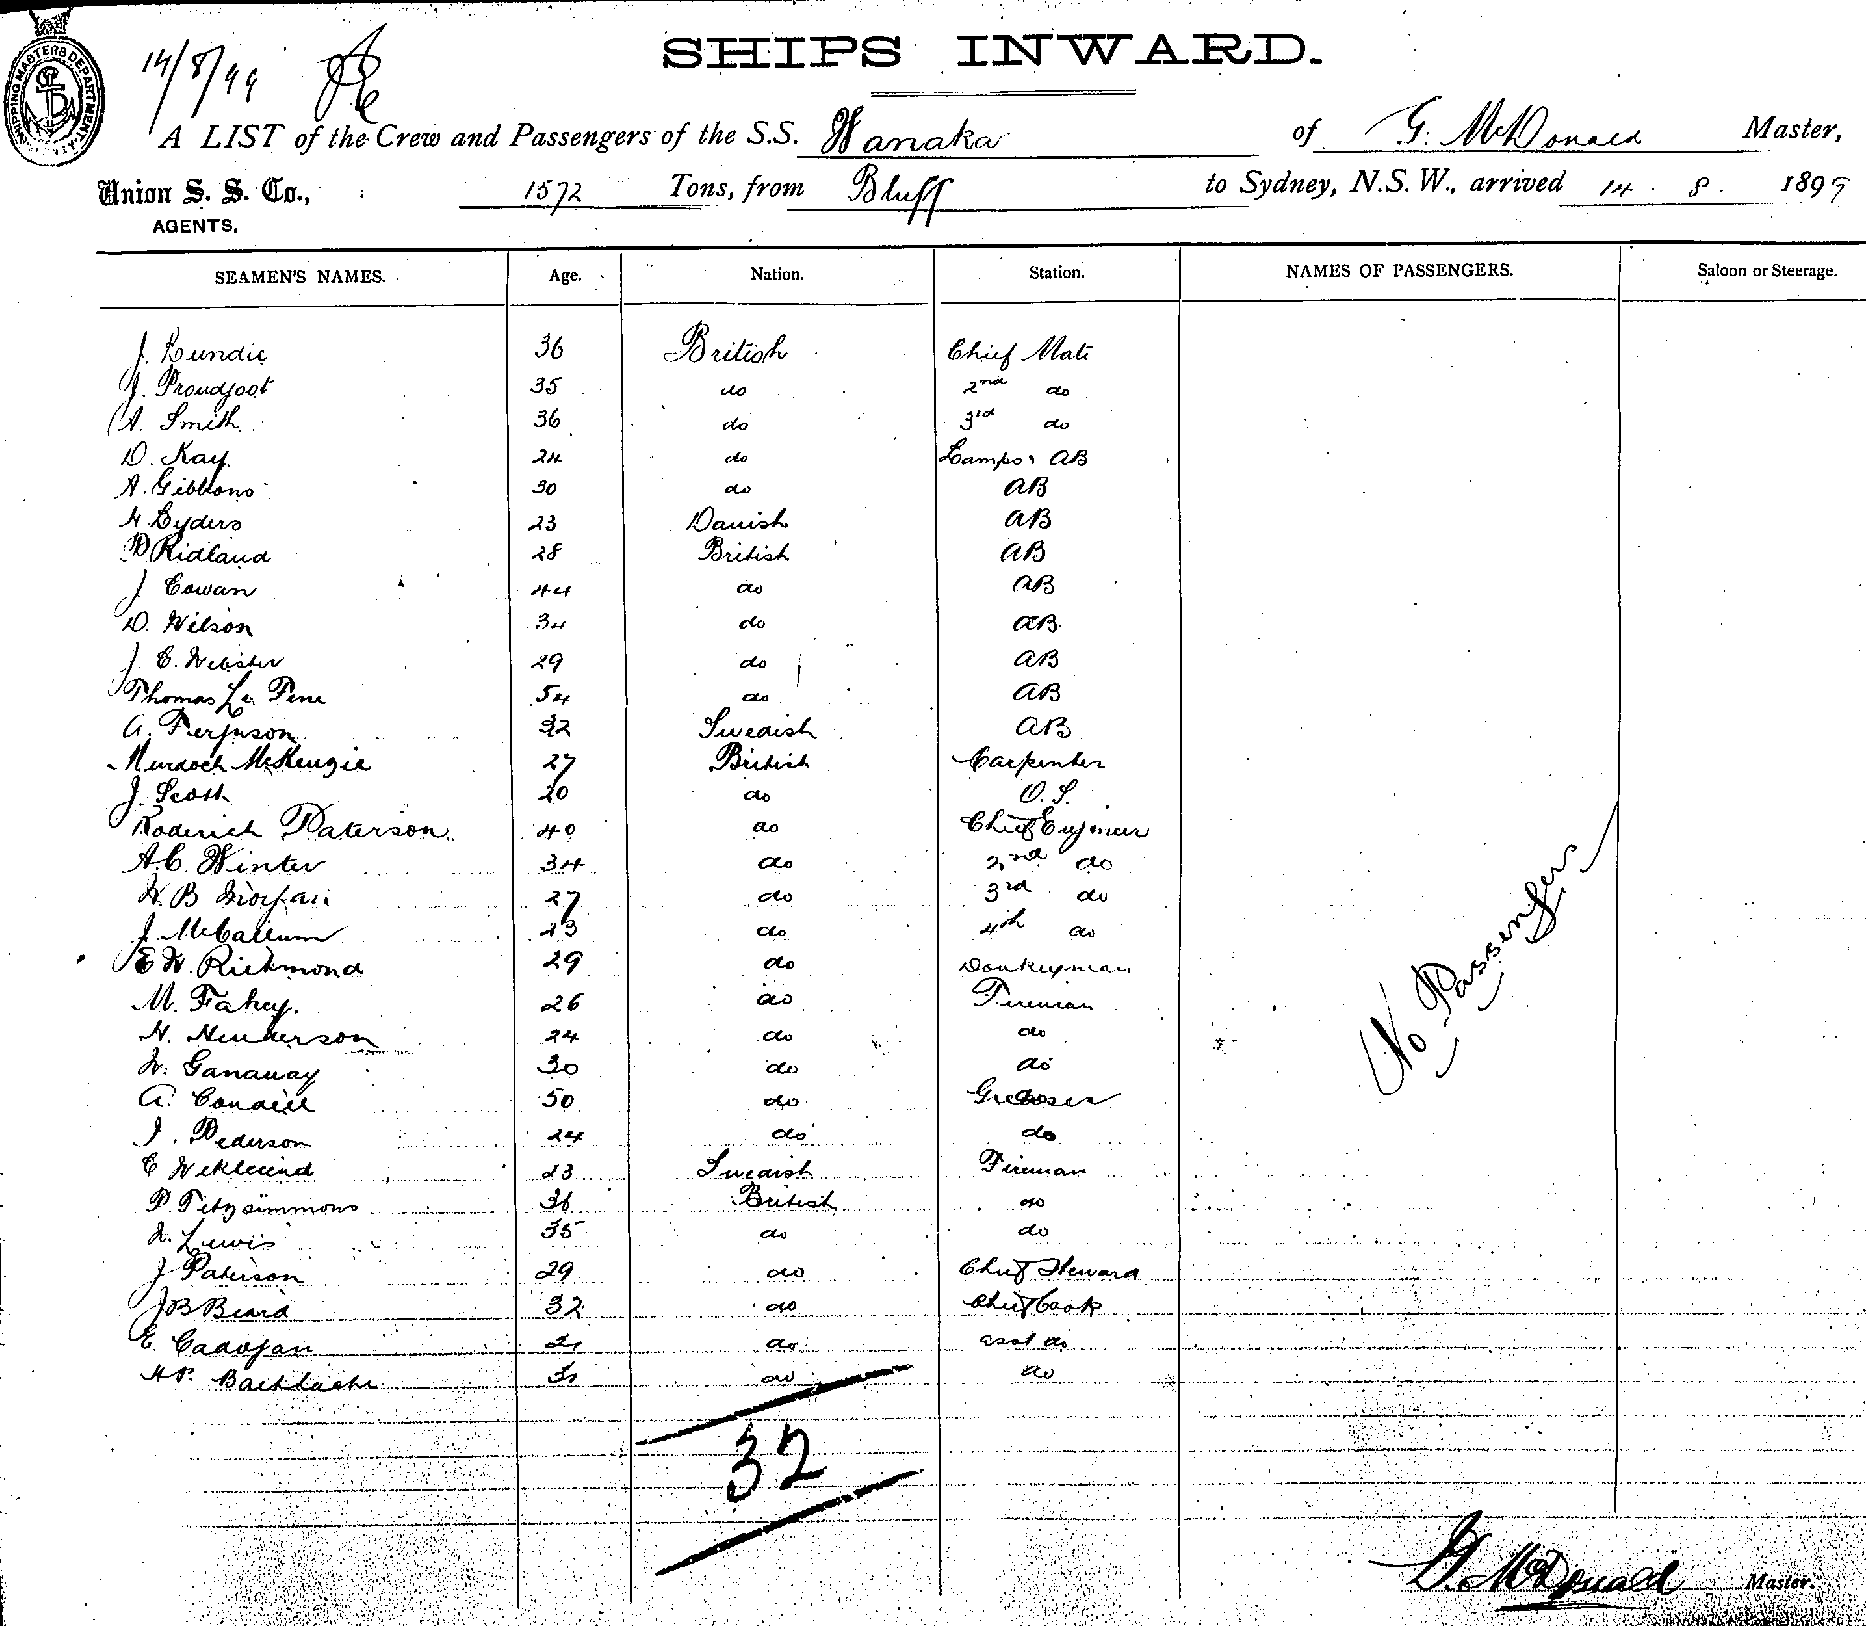 SHIPPING MASTERS DEPARTMENT
14/8/99
SHIPS INWARD.
A LIST of the Crew and Passengers of the S.S. Wanaka of G. McDonald Master,
Union S. S. Co., 1572 Tons, from Bluff to Sydney, N.S.W., arrived 14 . 8 . 1899
AGENTS.
SEAMEN'S NAMES. Age. Nation. Station. NAMES OF PASSENGERS. Saloon or Steerage.
J. Lundie 36 British Chief Mate
J. Proudfoot 35 do 2nd do
A. Smith 36 do 3rd do
D. Kay. 24 do Lamps & AB
A. Gibbons 30 do AB
H. Eyders 23 Danish AB
P Ridland 28 British AB
J Cowan 44 do AB
D. Wilson 34 do AB
J C. Webster 29 do AB
Thomas Le Pene 54 do AB
A. Ferguson 32 Swedish AB
Murdoch McKenzie 27 British Carpenter
J. Scott 20 do O.S.
Roderick Paterson 40 do Chief Engineer
A.C. Winter 34 do 2nd do
W. B 27 do 3rd do
J. McCallum 23 do 4th do
E W. Richmond 29 do Donkeyman
M. Fahey. 26 do Fireman
H. Henderson 24 do do
W. Ganaway 30 do do
A. 50 do Greaser
J. Pederson 24 do do
C 23 Swedish Fireman
P. Fitzsimmons 36 British do
Lewis 35 do do
J Paterson 29 do Chief Steward
J B Beard 32 do Chief Cook
E. Cadogan do asst do
H P. do do
No Passengers
32
G. McDonald Master.